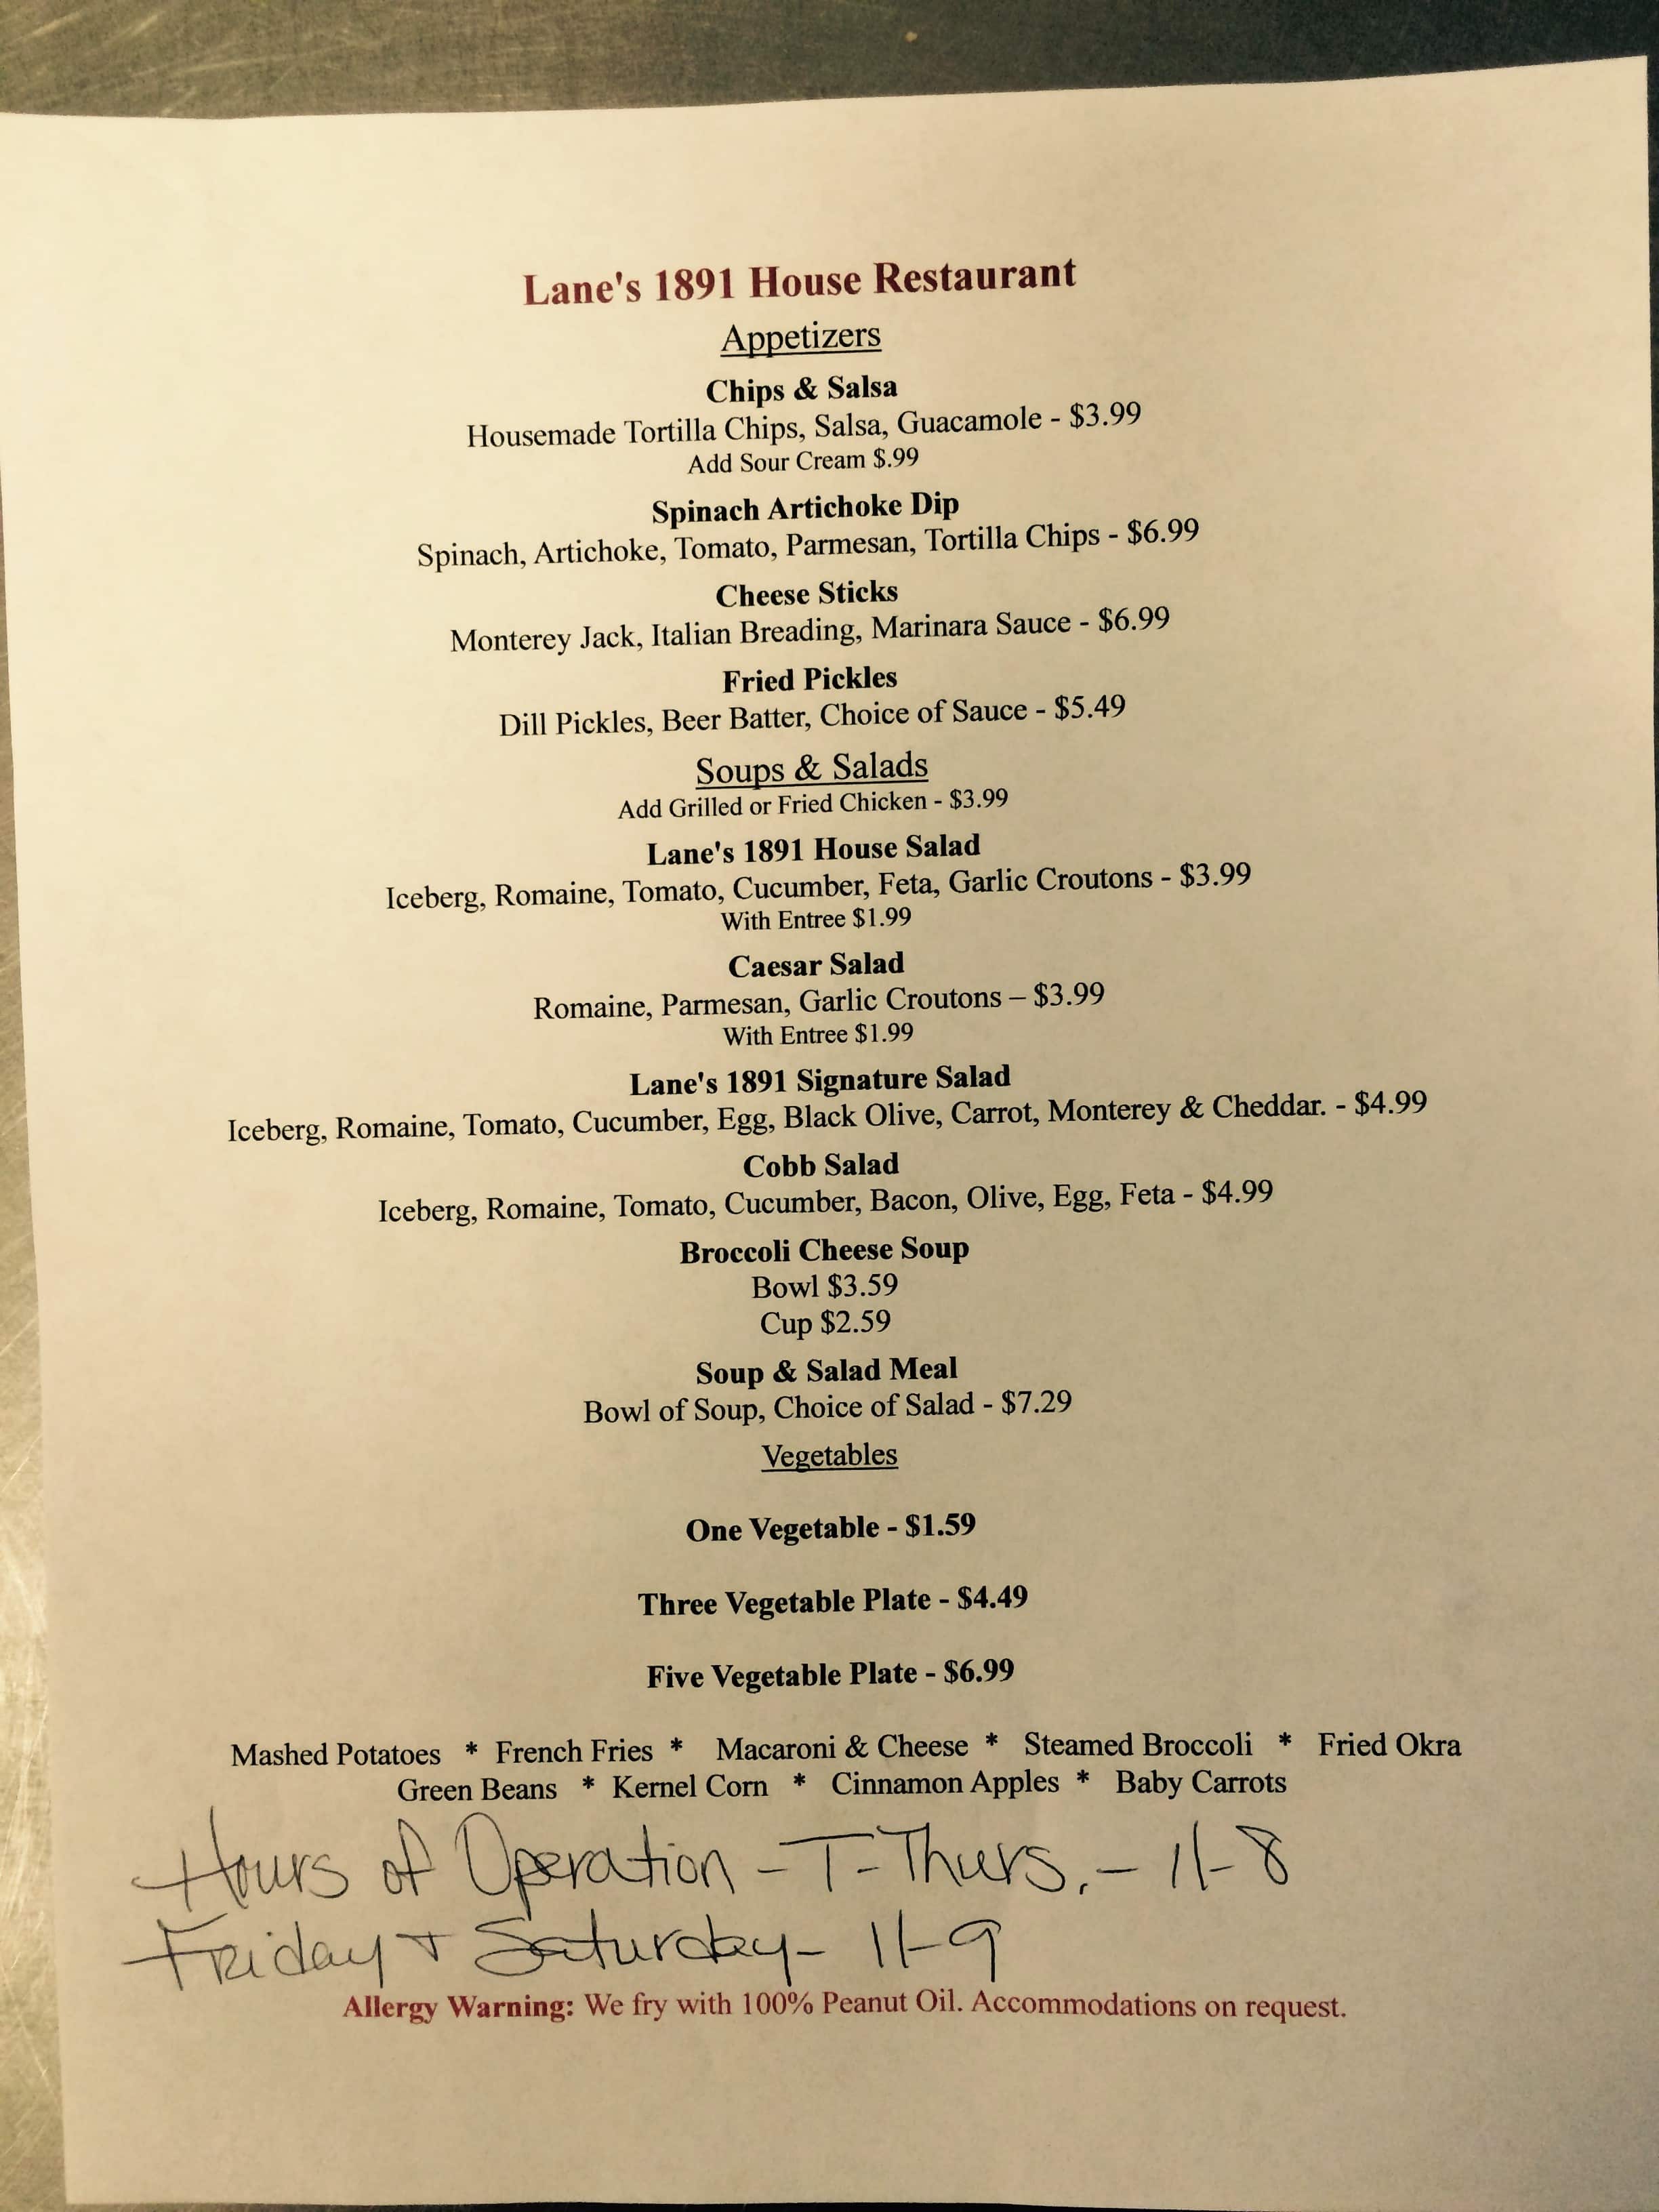 Lane's 1891 House Restaurant
Appetizers
Chips & Salsa
Housemade Tortilla Chips, Salsa, Guacamole - $3.99
Add Sour Cream $.99
Spinach Artichoke Dip
Spinach, Artichoke, Tomato, Parmesan, Tortilla Chips - $6.99
Cheese Sticks
Monterey Jack, Italian Breading, Marinara Sauce - $6.99
Fried Pickles
Dill Pickles, Beer Batter, Choice of Sauce - $5.49
Soups & Salads
Add Grilled or Fried Chicken - $3.99
Lane's 1891 House Salad
Iceberg, Romaine, Tomato, Cucumber, Feta, Garlic Croutons - $3.99
With Entree $1.99
Caesar Salad
Romaine, Parmesan, Garlic Croutons – $3.99
With Entree $1.99
Lane's 1891 Signature Salad
Iceberg, Romaine, Tomato, Cucumber, Egg, Black Olive, Carrot, Monterey & Cheddar. - $4.99
Cobb Salad
Iceberg, Romaine, Tomato, Cucumber, Bacon, Olive, Egg, Feta - $4.99
Broccoli Cheese Soup
Bowl $3.59
Cup $2.59
Soup & Salad Meal
Bowl of Soup, Choice of Salad - $7.29
Vegetables
One Vegetable - $1.59
Three Vegetable Plate - $4.49
Five Vegetable Plate - $6.99
Mashed Potatoes * French Fries * Macaroni & Cheese * Steamed Broccoli * Fried Okra
Green Beans * Kernel Corn * Cinnamon Apples * Baby Carrots
Hours of Operation - T-Thurs. - 11-8
Friday + Saturday - 11-9
Allergy Warning: We fry with 100% Peanut Oil. Accommodations on request.